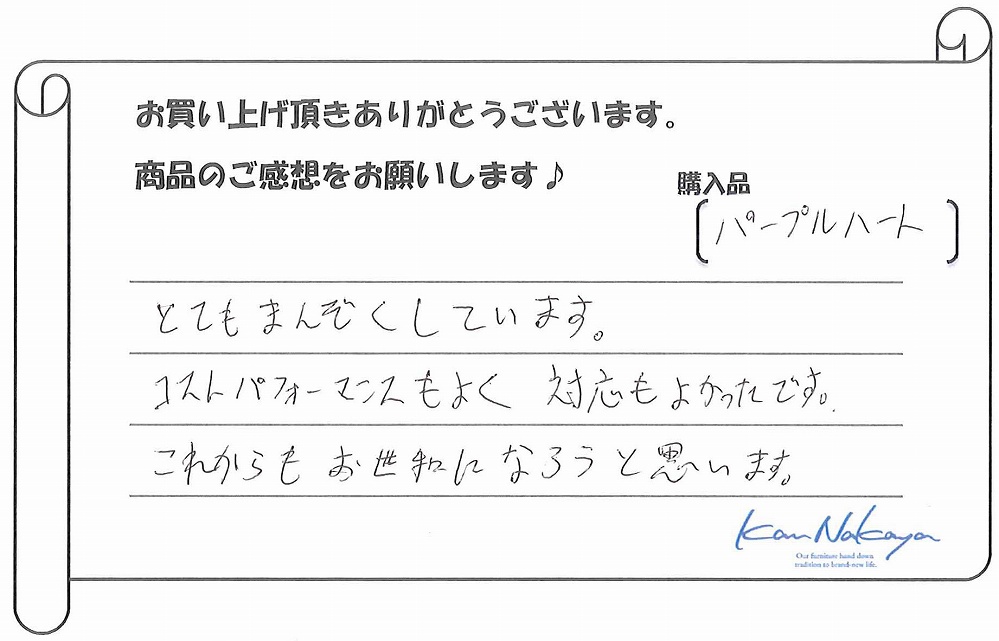 お買い上げ頂きありがとうございます。
商品のご感想をお願いします♪
購入品
パープルハート
とてもまんぞくしています。
コストパフォーマンスもよく 対応もよかったです。
これからも お世和になろうと思います。
Kan Nakaya
Our furniture hand down
tradition to brand-new life.